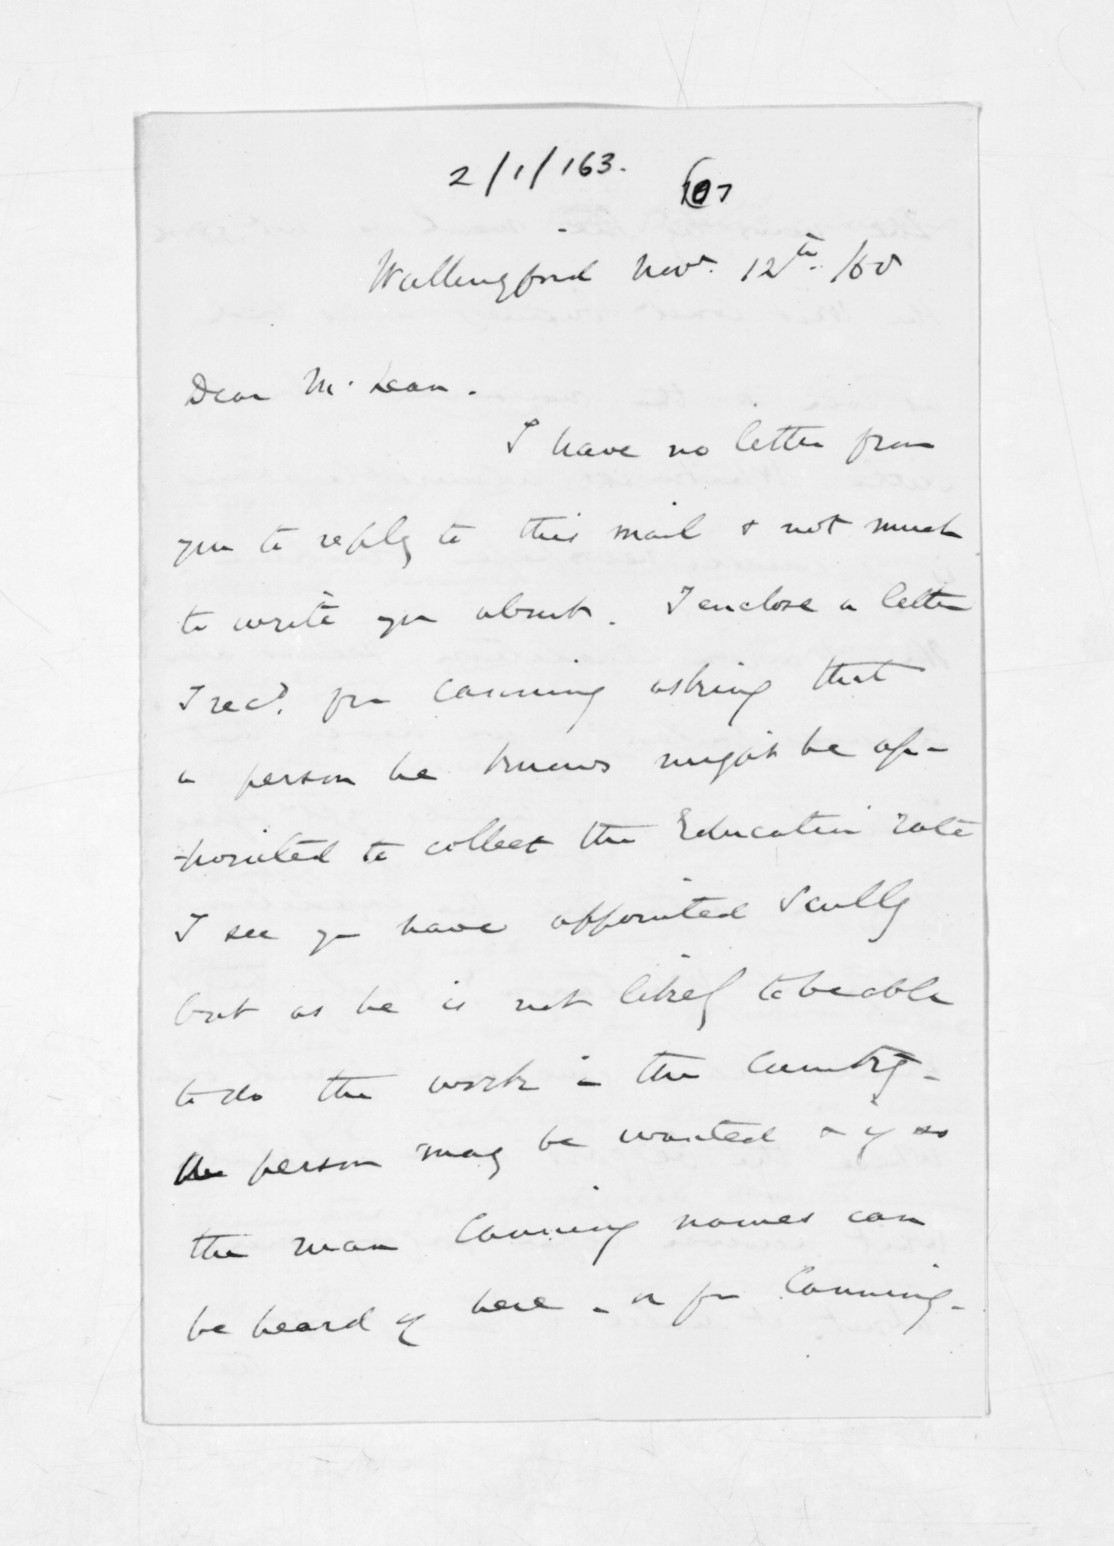 2/1/163.
107
Wallingford Novr. 12th. /60
Dear McLean.
I have no letter from
you to reply to this mail & not much
to write you about. I enclose a letter
I recd. from Canning asking that
a person he knows might be ap-
-pointed to collect the Education rate
I see you have appointed Scully
but as he is not likely to be able
to do the work in the Country -
person may be wanted & if so
the man Canning names can
be heard of here - or from Canning -